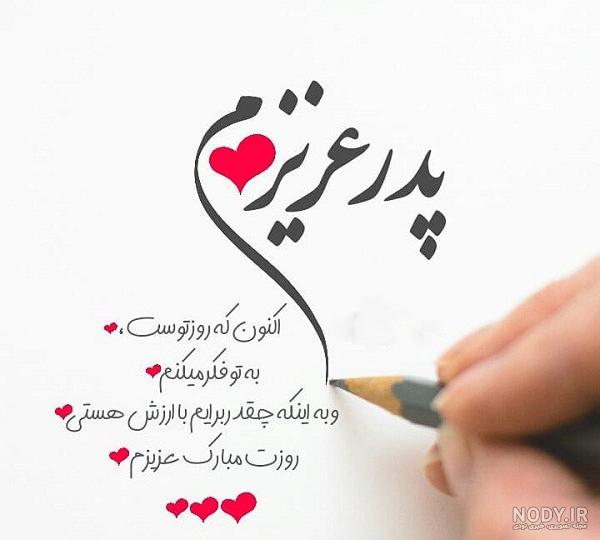 پدر عزیزم
اکنون که روز توست،
به تو فکر میکنم
و به اینکه چقدر برایم با ارزش هستی
روزت مبارک عزیزم
NODY.IR
مجله تصویری، خبری نودی